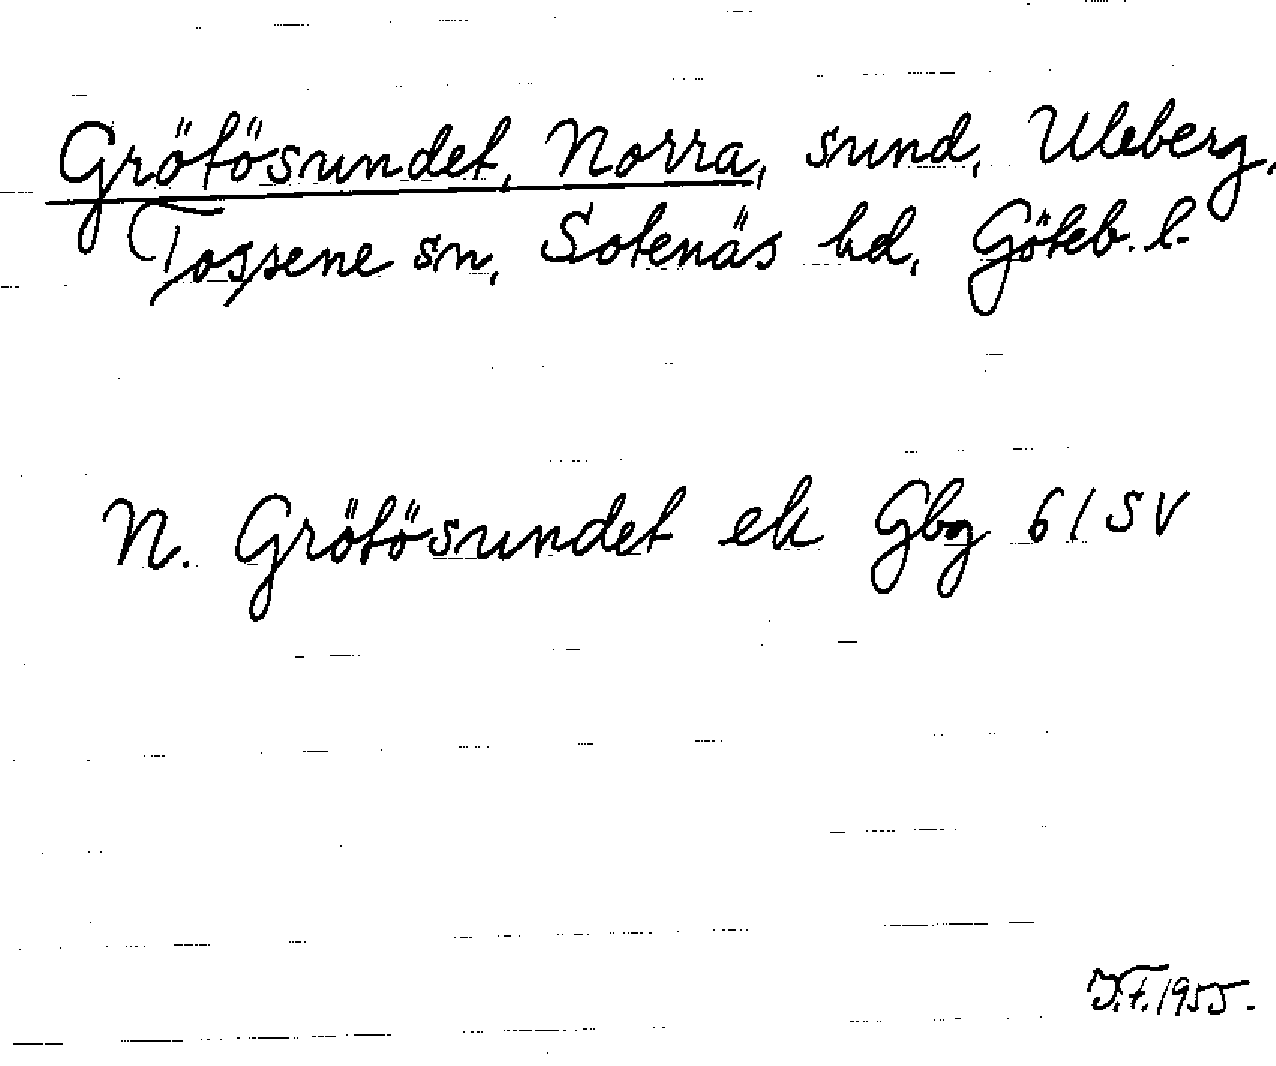 Grötösundet, Norra, sund, Uleberg,
Tossene sn, Sotenäs hd, Göteb. l.
N. Grötösundet ek Gbg 61 SV
J.F. 1955.